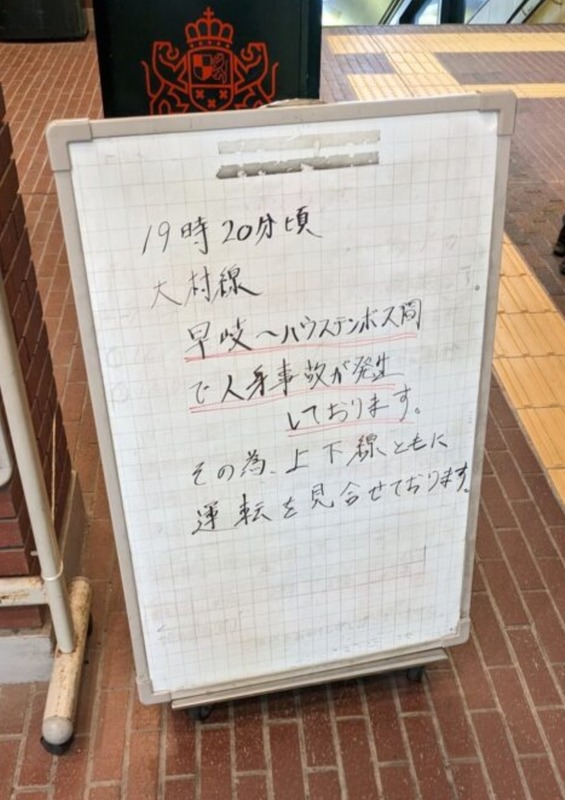 19時20分頃
大村線
早岐~ハウステンボス間
で人身事故が発生
しております。
その為、上下線ともに
運転を見合せております。